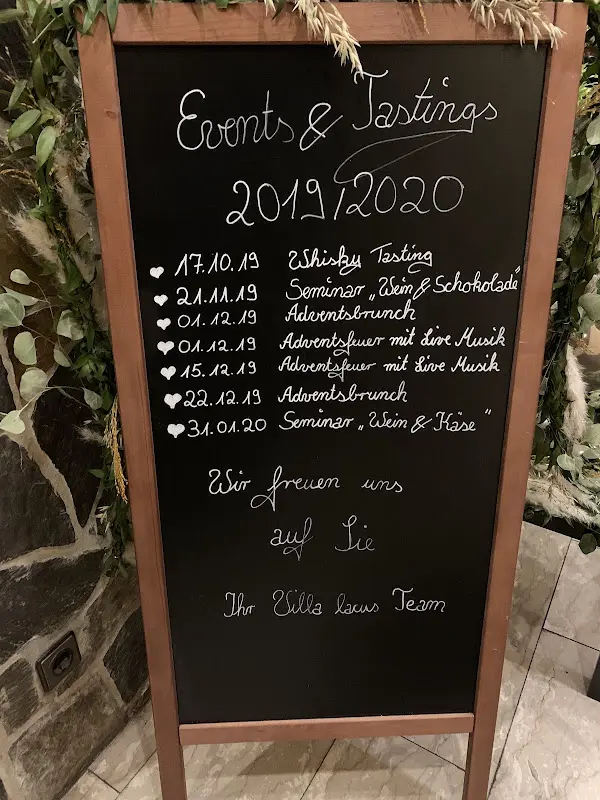 Events & Tastings
2019/2020
17.10.19 Whisky Tasting
21.11.19 Seminar „Wein & Schokolade"
01.12.19 Adventsbrunch
01.12.19 Adventsfeuer mit Live Musik
15.12.19 Adventsfeuer mit Live Musik
22.12.19 Adventsbrunch
31.01.20 Seminar „Wein & Käse"
Wir freuen uns
auf Sie
Ihr Villa lacus Team